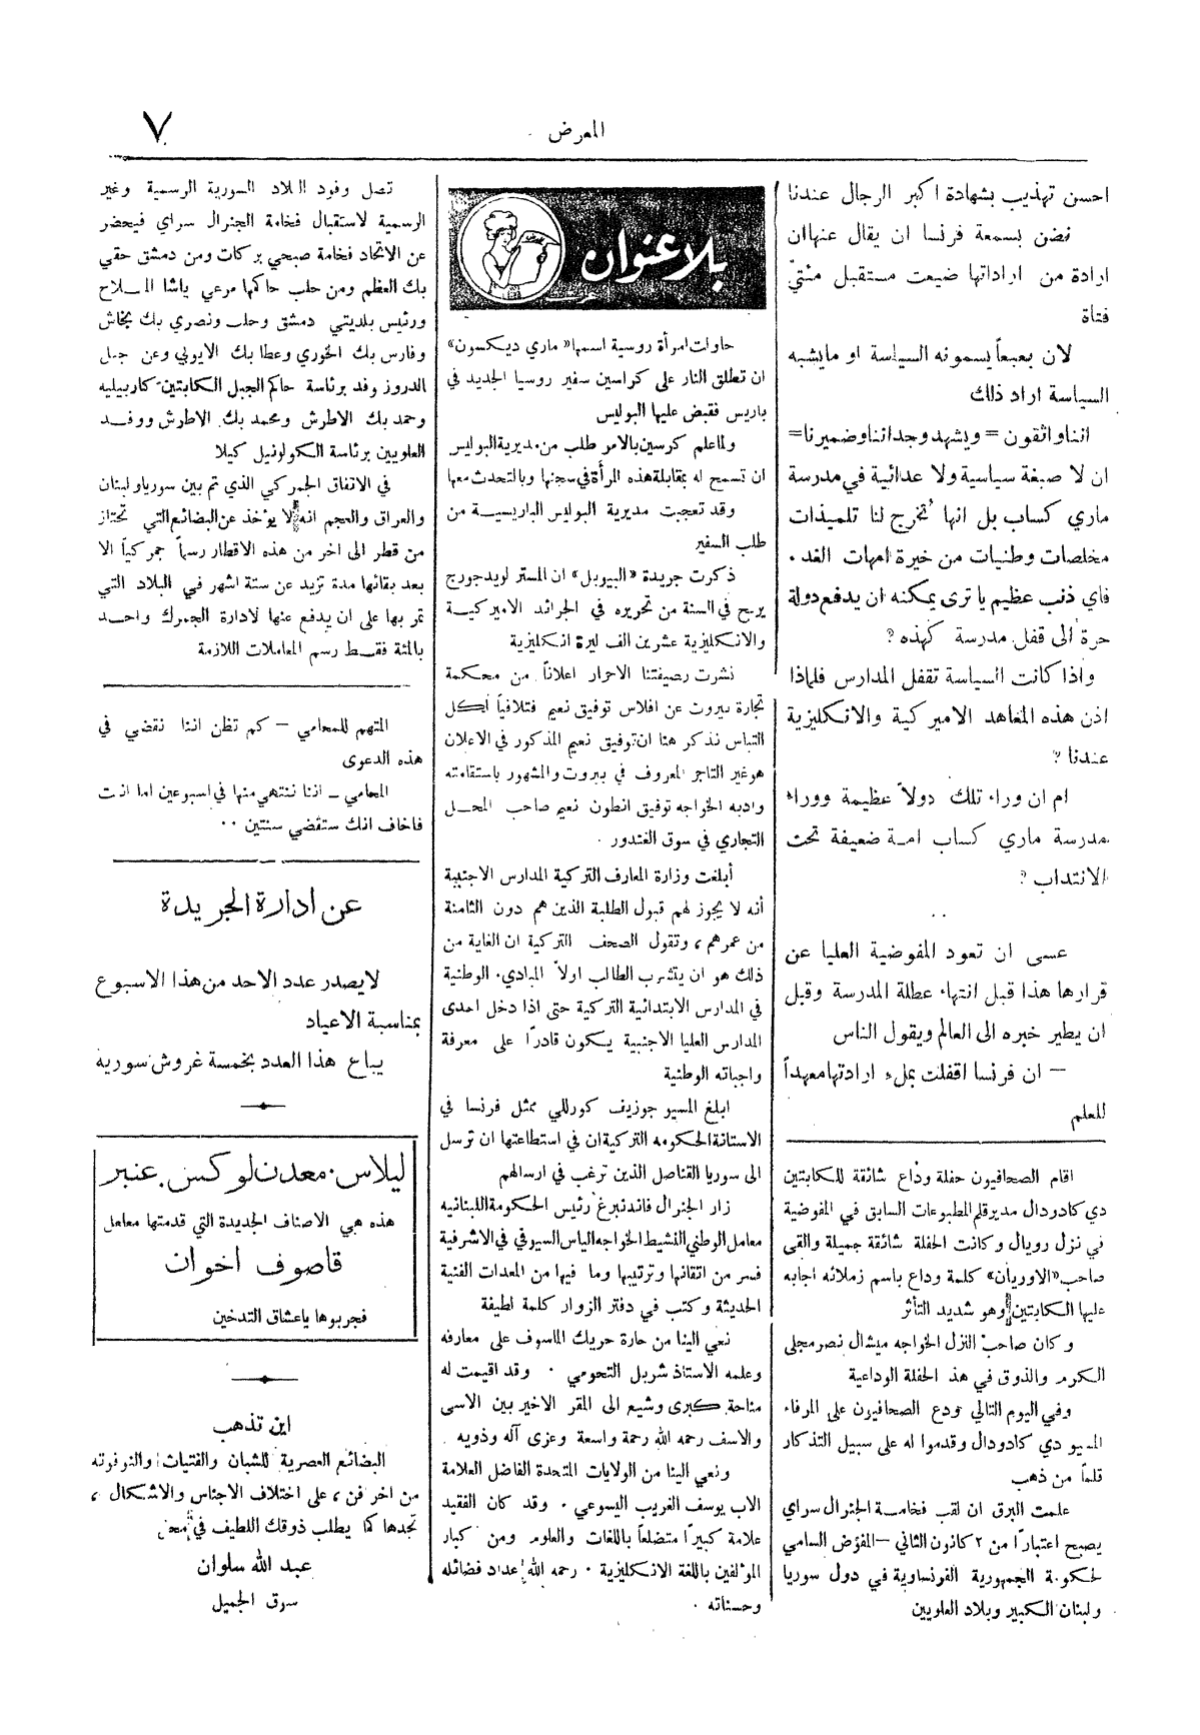 المعرض
٧
احسن تهذيب بشهادة اكبر الرجال عندنا
نضن بسمعة فرنسا ان يقال عنها ان
ارادة من اراداتها ضيعت مستقبل مئتي
فتاة
لان بعبعاً يسمونه السياسة او مايشبه
السياسة اراد ذلك
اننا واثقون = ويشهد وجداننا وضميرنا =
ان لا صبغة سياسية ولا عدائية في مدرسة
ماري كساب بل انها تخرج لنا تلميذات
مخلصات وطنيات من خيرة امهات الغد .
فاي ذنب عظيم يا ترى يمكنه ان يدفع دولة
حرة الى قفل مدرسة كهذه ?
واذا كانت السياسة تقفل المدارس فلماذا
اذن هذه المعاهد الاميركية والانكليزية
عندنا ?
ام ان وراء تلك دولاً عظيمة ووراء
مدرسة ماري كساب امة ضعيفة تحت
الانتداب ?
..
عسى ان تعود المفوضية العليا عن
قرارها هذا قبل انتهاء عطلة المدرسة وقبل
ان يطير خبره الى العالم ويقول الناس
— ان فرنسا اقفلت بملء ارادتها معهداً
للعلم
اقام الصحافيون حفلة وداع شائقة للكابتين
دي كادردال مدير قلم المطبوعات السابق في المفوضية
في نزل رويال وكانت الحفلة شائقة جميلة والقى
صاحب «الاوريان» كلمة وداع باسم زملائه اجابه
عليها الكابتين وهو شديد التأثر
وكان صاحب النزل الخواجه ميشال نصر مجلى
الكرم والذوق في هذ الحفلة الوداعية
وفي اليوم التالي ودع الصحافيون على المرفاء
المسيو دي كادودال وقدموا له على سبيل التذكار
قلماً من ذهب
علمت البرق ان لقب فخامة الجنرال سراي
يصبح اعتباراً من ٢ كانون الثاني — المفوض السامي
لحكومة الجمهورية الفرنساوية في دول سوريا
ولبنان الكبير وبلاد العلويين
بلا عنوان
حاولت امرأة روسية اسمها « ماري ديكسون»
ان تطلق النار على كراسين سفير روسيا الجديد في
باريس فقبض عليها البوليس
ولما علم كرسين بالامر طلب من مديرية البوليس
ان تسمح له بمقابلة هذه المرأة في سجنها وبالتحدث معها
وقد تعجبت مديرية البوليس الباريسية من
طلب السفير
ذكرت جريدة «البيوبل» ان المستر لويد جورج
يربح في السنة من تحريره في الجرائد الاميركية
والانكليزية عشرين الف ليرة انكليزية
نشرت رصيفتنا الاحرار اعلاناً من محكمة
تجارة بيروت عن افلاس توفيق نعيم فتلافياً لكل
التباس نذكر هنا ان توفيق نعيم المذكور في الاعلان
هو غير التاجر المعروف في بيروت والمشهور باستقامته
وادبه الخواجه توفيق انطون نعيم صاحب المحل
التجاري في سوق الغندور .
أبلغت وزارة المعارف التركية المدارس الاجنبية
أنه لا يجوز لهم قبول الطلبة الذين هم دون الثامنة
من عمرهم ، وتقول الصحف التركية ان الغاية من
ذلك هو ان يتشرب الطالب اولاً المبادىء الوطنية
في المدارس الابتدائية التركية حتى اذا دخل احدى
المدارس العليا الاجنبية يكون قادراً على معرفة
واجباته الوطنية
ابلغ المسيو جوزيف كورللي ممثل فرنسا في
الاستانة الحكومه التركية ان في استطاعتها ان ترسل
الى سوريا القناصل الذين ترغب في ارسالهم
زار الجنرال فاندنبرغ رئيس الحكومة اللبنانيه
معامل الوطني النشيط الخواجه الياس السيوفي في الاشرفية
فسر من اتقانها وترتيبها وما فيها من المعدات الفنية
الحديثة وكتب في دفتر الزوار كلمة لطيفة
نعي الينا من حارة حريك الماسوف على معارفه
وعلمه الاستاذ شربل التحومي . وقد اقيمت له
مناحة كبرى وشيع الى المقر الاخير بين الاسى
والاسف رحمه الله رحمة واسعة وعزى آله وذويه .
ونعي الينا من الولايات المتحدة الفاضل العلامة
الاب يوسف الغريب اليسوعي . وقد كان الفقيد
علامة كبيراً متضلعاً باللغات والعلوم ومن كبار
المؤلفين باللغة الانكليزية . رحمه الله عداد فضائله
وحسناته .
تصل وفود البلاد السورية الرسمية وغير
الرسمية لاستقبال فخامة الجنرال سراي فيحضر
عن الاتحاد فخامة صبحي بركات ومن دمشق حقي
بك العظم ومن حلب حاكمها مرعي باشا الملاح
ورئيس بلديتي دمشق وحلب ونصري بك بخاش
وفارس بك الخوري وعطا بك الايوبي وعن جبل
الدروز وفد برئاسة حاكم الجبل الكابتين كاربيليه
وحمد بك الاطرش ومحمد بك الاطرش ووفد
العلويين برئاسة الكولونيل كيلا
في الاتفاق الجمركي الذي تم بين سوريا ولبنان
والعراق والعجم انه لا يؤخذ عن البضائع التي تجتاز
من قطر الى اخر من هذه الاقطار رسماً جمركياً الا
بعد بقائها مدة تزيد عن ستة اشهر في البلاد التي
تمر بها على ان يدفع عنها لادارة الجمرك واحد
بالمئة فقط رسم المعاملات اللازمة
المتهم للمحامي — كم تظن اننا نقضي في
هذه الدعوى
المحامي — اننا ننتهي منها في اسبوعين اما انت
فاخاف انك ستقضي سنتين ..
عن ادارة الجريدة
لا يصدر عدد الاحد من هذا الاسبوع
بمناسبة الاعياد
يباع هذا العدد بخمسة غروش سورية
ليلاس . معدن لوكس . عنبر
هذه هي الاصناف الجديدة التي قدمتها معامل
قاصوف اخوان
فجربوها يا عشاق التدخين
اين تذهب
البضائع العصرية للشبان والفتيات والنوفوته
من اخر فن ، على اختلاف الاجناس والاشكال ،
تجدها كما يطلب ذوقك اللطيف في محل
عبد الله سلوان
سوق الجميل